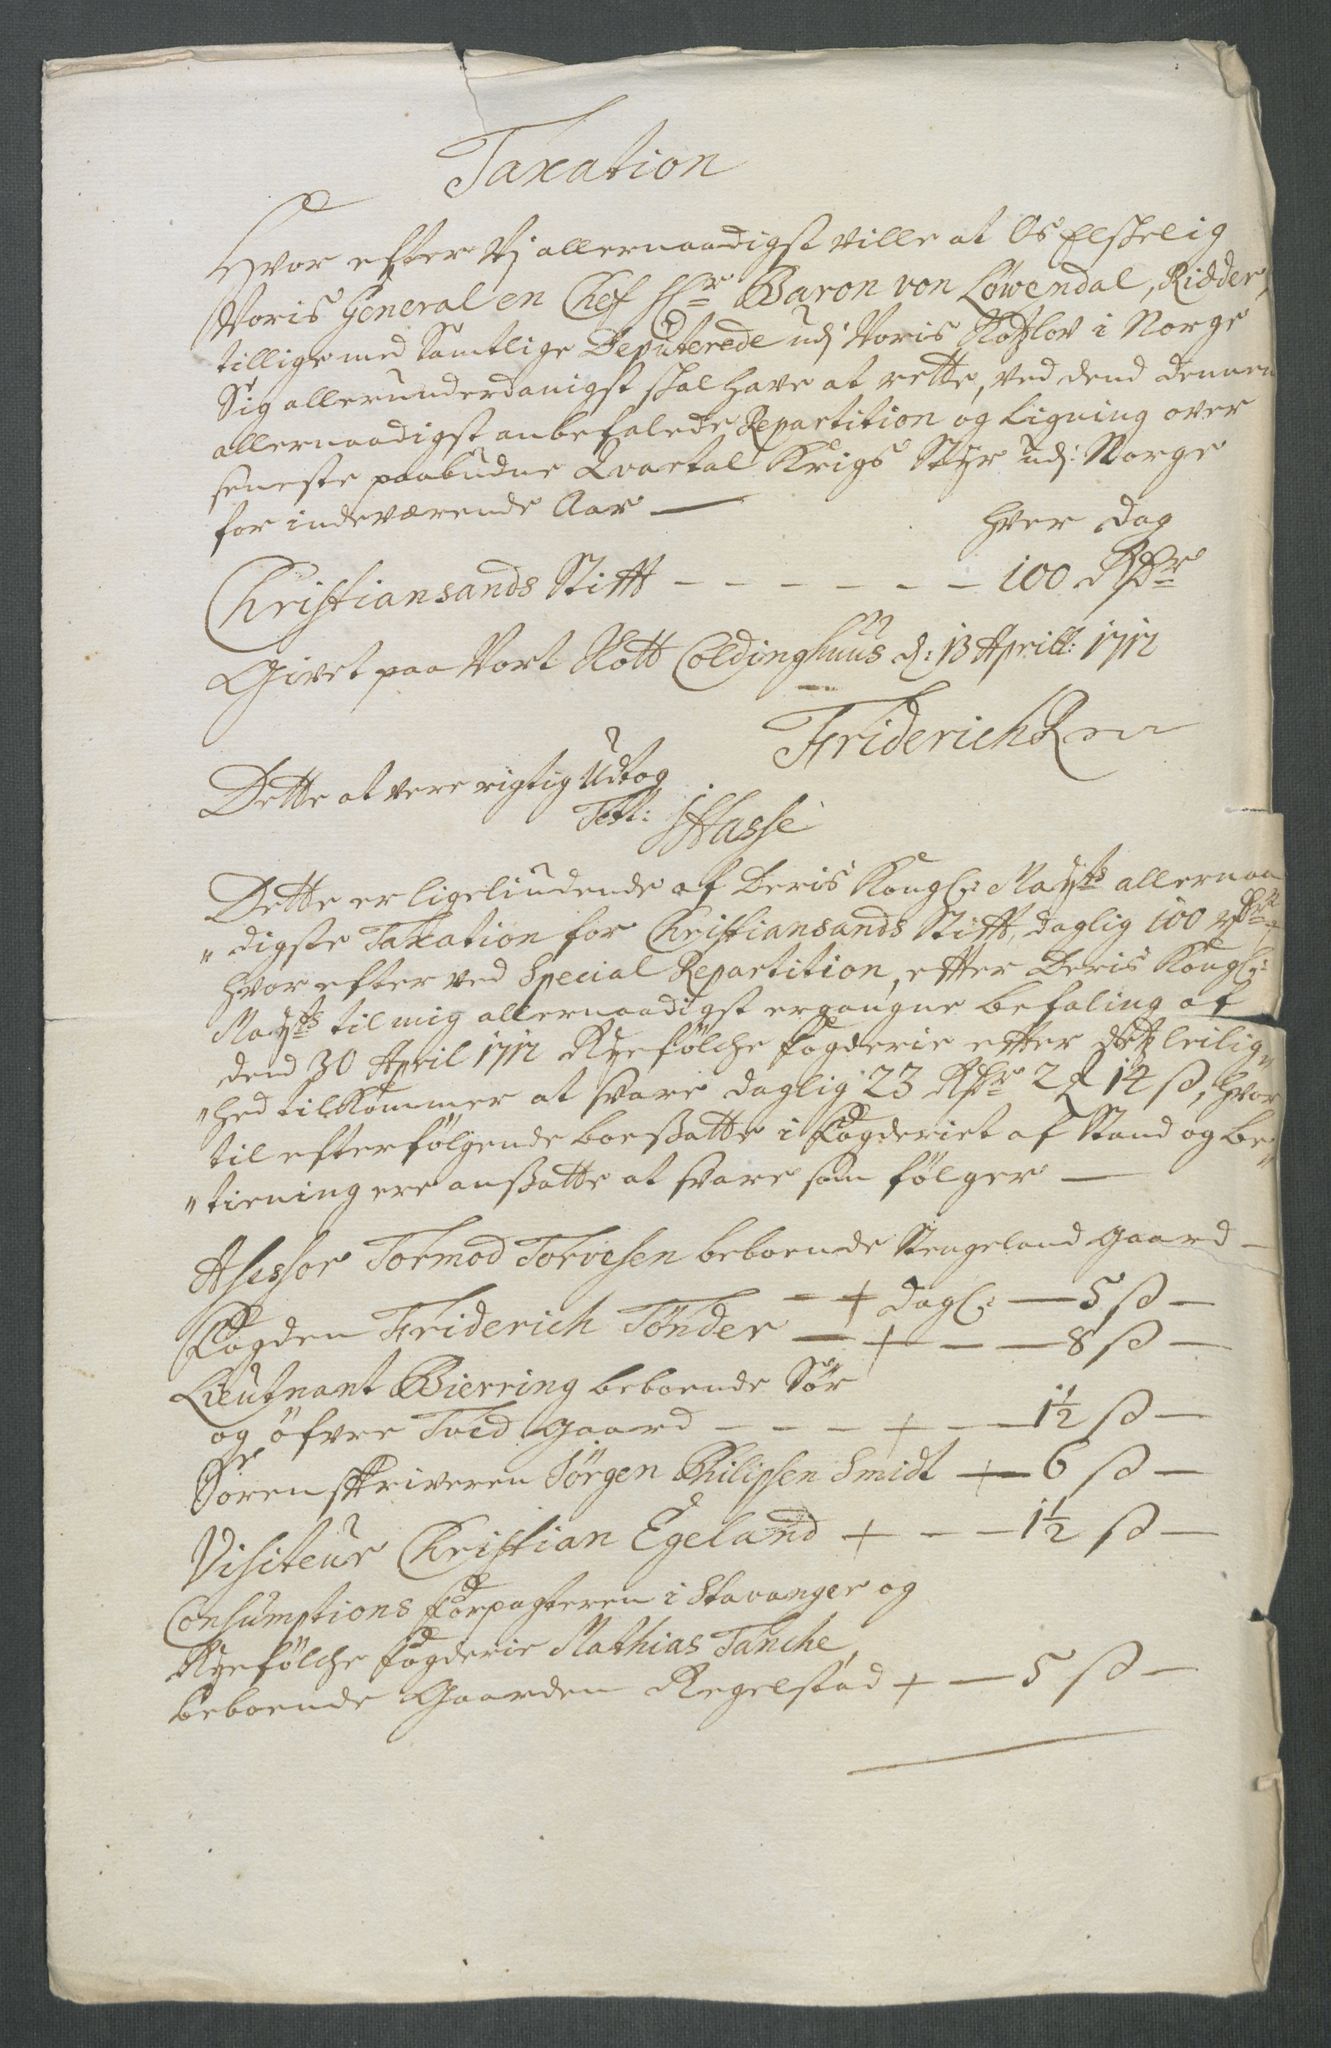 Taxation
Hvor efter Vj allernaadigst ville at Os Elskelig
Voris General en Chef Hr Baron von Löwendal, Ridder,
tillige med Samtlige Deputerede udj Voris Slotzlov i Norge
Sig allerunderdanigst skal have at rette, ved dend dennem
allernaadigst anbefalede Repartition og Ligning over
seneste paabudne Qvartal Krigs Styr udj: Norge
for indeværende Aar —
hver dag
Christiansands Stifft - - - - - - - 100 Rdr
Givet paa Vort Slott Coldinghuus d: 13 Aprill: 1712
Friderich R
Dette at vere rigtig Udtog
Test: JHasse
Dette er ligeliudende af Deris Kongl: Maysts allernaa
"digste Taxation for Christiansands Stifft, daglig 100 rdr
hvor efter ved Special Repartition, efter Deris Kongl:
Maysts til mig allernaadigst ergangne befaling af
dend 30 April 1712 Ryefølche fogderie efter detz leilig"
"hed tilkommer at svare daglig 23 Rdr 2 ₰ 14 ß, hvor
til efterfølgende boesatte i Fogderiet af Stand og be"
"tiening ere ansatte at svare som følger —
Assessor Tormod Torvesen beboende Stengeland gaard —
— + dagl: — 5 ß —
Fogden Friderich Tönder — + — — 8 ß —
Lieutnant Bierring beboende Sör
og öfvre Tved gaard - - - + — 1½ ß —
Sorenskriveren Jörgen Philipsen Smidt + 6 ß —
Visiteur Christian Egeland + - - 1½ ß —
Consumptions Forpagteren i Stavanger og
Ryefølche fogderie Mathias Tanche,
beboende Gaarden Regelstad + — 5 ß —